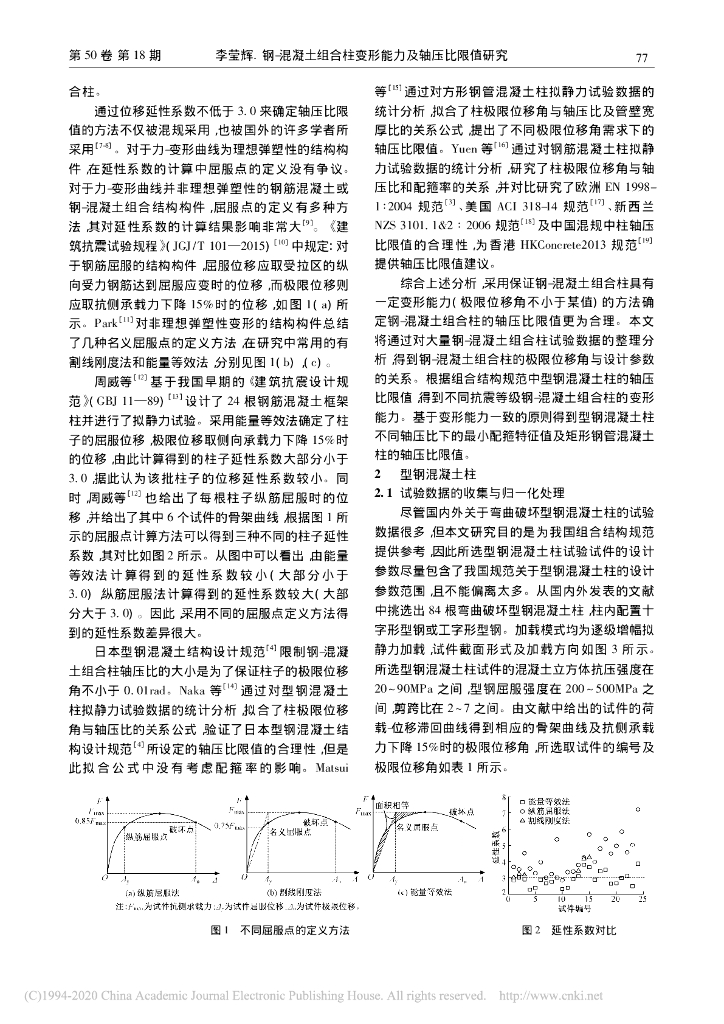 第 50 卷 第 18 期 李莹辉. 钢-混凝土组合柱变形能力及轴压比限值研究 77
合柱。
通过位移延性系数不低于 3. 0 来确定轴压比限
值的方法不仅被混规采用,也被国外的许多学者所
采用[7-8]。对于力-变形曲线为理想弹塑性的结构构
件,在延性系数的计算中屈服点的定义没有争议。
对于力-变形曲线并非理想弹塑性的钢筋混凝土或
钢-混凝土组合结构构件,屈服点的定义有多种方
法,其对延性系数的计算结果影响非常大[9]。《建
筑抗震试验规程》(JGJ/T 101—2015)[10]中规定: 对
于钢筋屈服的结构构件,屈服位移应取受拉区的纵
向受力钢筋达到屈服应变时的位移,而极限位移则
应取抗侧承载力下降 15%时的位移,如图 1(a)所
示。Park[11]对非理想弹塑性变形的结构构件总结
了几种名义屈服点的定义方法,在研究中常用的有
割线刚度法和能量等效法,分别见图 1(b)、(c)。
周威等[12]基于我国早期的《建筑抗震设计规
范》(GBJ 11—89)[13]设计了 24 根钢筋混凝土框架
柱并进行了拟静力试验。采用能量等效法确定了柱
子的屈服位移,极限位移取侧向承载力下降 15%时
的位移,由此计算得到的柱子延性系数大部分小于
3. 0,据此认为该批柱子的位移延性系数较小。同
时,周威等[12]也给出了每根柱子纵筋屈服时的位
移,并给出了其中 6 个试件的骨架曲线,根据图 1 所
示的屈服点计算方法可以得到三种不同的柱子延性
系数,其对比如图 2 所示。从图中可以看出,由能量
等效法计算得到的延性系数较小(大部分小于
3. 0),纵筋屈服法计算得到的延性系数较大(大部
分大于 3. 0)。因此,采用不同的屈服点定义方法得
到的延性系数差异很大。
日本型钢混凝土结构设计规范[4]限制钢-混凝
土组合柱轴压比的大小是为了保证柱子的极限位移
角不小于 0. 01rad。Naka 等[14]通过对型钢混凝土
柱拟静力试验数据的统计分析,拟合了柱极限位移
角与轴压比的关系公式,验证了日本型钢混凝土结
构设计规范[4]所设定的轴压比限值的合理性,但是
此拟合公式中没有考虑配箍率的影响。Matsui
等[15]通过对方形钢管混凝土柱拟静力试验数据的
统计分析,拟合了柱极限位移角与轴压比及管壁宽
厚比的关系公式,提出了不同极限位移角需求下的
轴压比限值。Yuen 等[16]通过对钢筋混凝土柱拟静
力试验数据的统计分析,研究了柱极限位移角与轴
压比和配箍率的关系,并对比研究了欧洲 EN 1998-
1∶2004 规范[3]、美国 ACI 318-14 规范[17]、新西兰
NZS 3101. 1&2∶2006 规范[18]及中国混规中柱轴压
比限值的合理性,为香港 HKConcrete2013 规范[19]
提供轴压比限值建议。
综合上述分析,采用保证钢-混凝土组合柱具有
一定变形能力(极限位移角不小于某值)的方法确
定钢-混凝土组合柱的轴压比限值更为合理。本文
将通过对大量钢-混凝土组合柱试验数据的整理分
析,得到钢-混凝土组合柱的极限位移角与设计参数
的关系。根据组合结构规范中型钢混凝土柱的轴压
比限值,得到不同抗震等级钢-混凝土组合柱的变形
能力。基于变形能力一致的原则得到型钢混凝土柱
不同轴压比下的最小配箍特征值及矩形钢管混凝土
柱的轴压比限值。
2 型钢混凝土柱
2. 1 试验数据的收集与归一化处理
尽管国内外关于弯曲破坏型钢混凝土柱的试验
数据很多,但本文研究目的是为我国组合结构规范
提供参考,因此所选型钢混凝土柱试验试件的设计
参数尽量包含了我国规范关于型钢混凝土柱的设计
参数范围,且不能偏离太多。从国内外发表的文献
中挑选出 84 根弯曲破坏型钢混凝土柱,柱内配置十
字形型钢或工字形型钢。加载模式均为逐级增幅拟
静力加载,试件截面形式及加载方向如图 3 所示。
所选型钢混凝土柱试件的混凝土立方体抗压强度在
20~90MPa 之间,型钢屈服强度在 200~500MPa 之
间,剪跨比在 2~7 之间。由文献中给出的试件的荷
载-位移滞回曲线得到相应的骨架曲线及抗侧承载
力下降 15%时的极限位移角,所选取试件的编号及
极限位移角如表 1 所示。
F Fmax 0.85Fmax 破坏点 纵筋屈服点 O Δy Δu Δ
(a) 纵筋屈服法
F Fmax 0.75Fmax 破坏点 名义屈服点 O Δy Δu Δ
(b) 割线刚度法
F 面积相等 Fmax 破坏点 名义屈服点 O Δy Δu Δ
(c) 能量等效法
注:Fmax为试件抗侧承载力;Δy为试件屈服位移;Δu为试件极限位移。
图 1 不同屈服点的定义方法
能量等效法
纵筋屈服法
割线刚度法
延性系数
8 7 6 5 4 3 2
0 5 10 15 20 25
试件编号
图 2 延性系数对比
(C)1994-2020 China Academic Journal Electronic Publishing House. All rights reserved. http://www.cnki.net